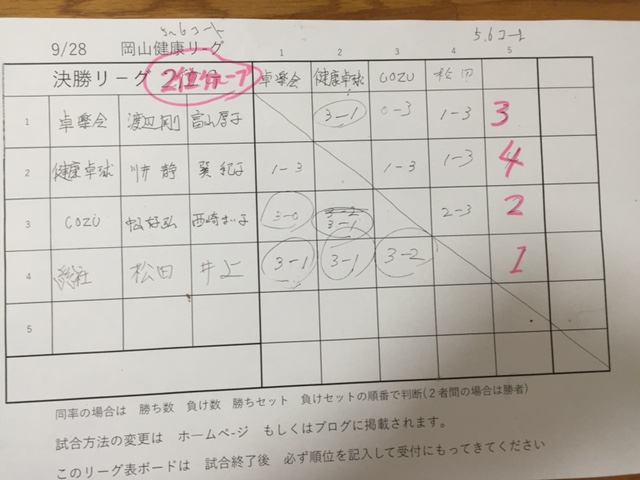 5.6コート
5.6コート
9/28 岡山健康リーグ 1 2 3 4 5
決勝リーグ 2位グループ 卓楽会 健康卓球 COZU 松田
1 卓楽会 渡辺剛 富山厚子 3-1 0-3 1-3 3
2 健康卓球 川井 静 巽 紀子 1-3 1-3 1-3 4
3 COZU 西崎 子 3-0 3-2 3-1 2-3 2
4 総社 松田 井上 3-1 3-1 3-2 1
5
同率の場合は 勝ち数 負け数 勝ちセット 負けセットの順番で判断(2者間の場合は勝者)
試合方法の変更は ホームページ もしくはブログに掲載されます。
このリーグ表ボードは 試合終了後 必ず順位を記入して受付にもってきてください